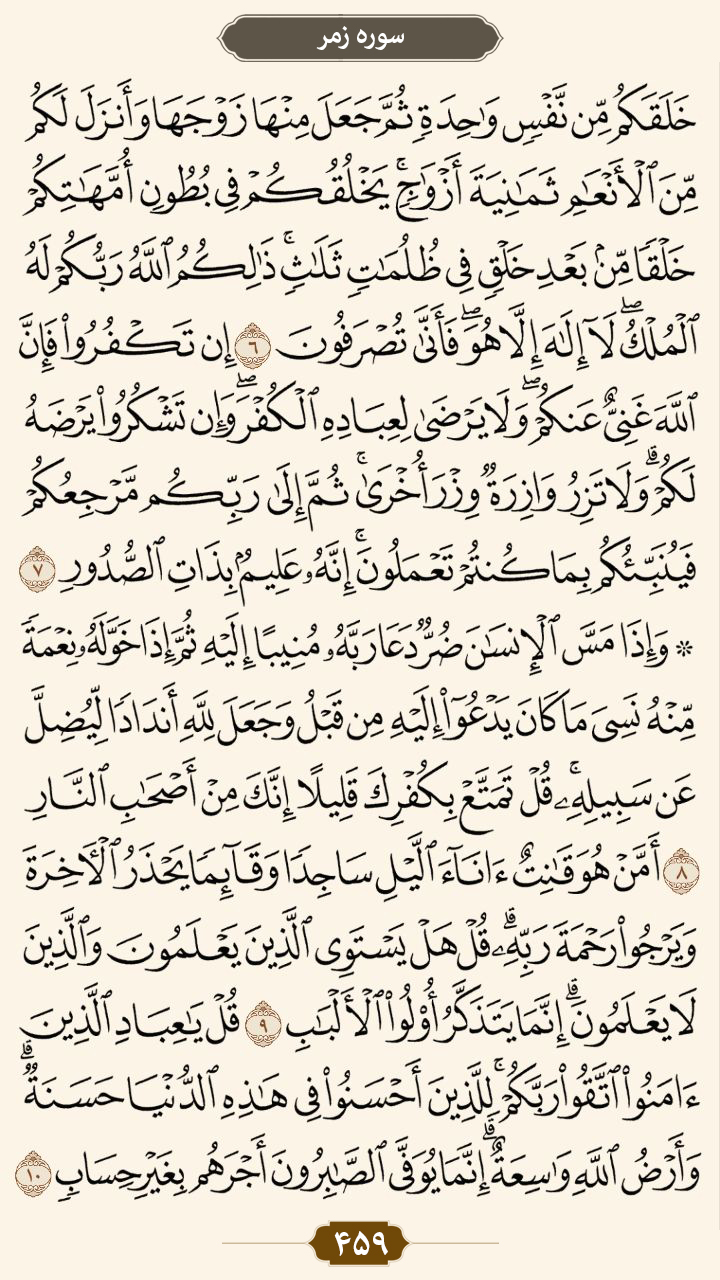 سوره زمر
خَلَقَكُم مِّن نَّفْسٍ وَٰحِدَةٍ ثُمَّ جَعَلَ مِنْهَا زَوْجَهَا وَأَنزَلَ لَكُم
مِّنَ ٱلْأَنْعَٰمِ ثَمَٰنِيَةَ أَزْوَٰجٍ ۚ يَخْلُقُكُمْ فِى بُطُونِ أُمَّهَٰتِكُمْ
خَلْقًا مِّنۢ بَعْدِ خَلْقٍ فِى ظُلُمَٰتٍ ثَلَٰثٍ ۚ ذَٰلِكُمُ ٱللَّهُ رَبُّكُمْ لَهُ
ٱلْمُلْكُ ۖ لَآ إِلَٰهَ إِلَّا هُوَ ۖ فَأَنَّىٰ تُصْرَفُونَ ٦ إِن تَكْفُرُوا۟ فَإِنَّ
ٱللَّهَ غَنِىٌّ عَنكُمْ ۖ وَلَا يَرْضَىٰ لِعِبَادِهِ ٱلْكُفْرَ ۖ وَإِن تَشْكُرُوا۟ يَرْضَهُ
لَكُمْ ۗ وَلَا تَزِرُ وَازِرَةٌ وِزْرَ أُخْرَىٰ ۚ ثُمَّ إِلَىٰ رَبِّكُم مَّرْجِعُكُمْ
فَيُنَبِّئُكُم بِمَا كُنتُمْ تَعْمَلُونَ ۚ إِنَّهُۥ عَلِيمٌۢ بِذَاتِ ٱلصُّدُورِ ٧
۞ وَإِذَا مَسَّ ٱلْإِنسَٰنَ ضُرٌّ دَعَا رَبَّهُۥ مُنِيبًا إِلَيْهِ ثُمَّ إِذَا خَوَّلَهُۥ نِعْمَةً
مِّنْهُ نَسِىَ مَا كَانَ يَدْعُوٓا۟ إِلَيْهِ مِن قَبْلُ وَجَعَلَ لِلَّهِ أَندَادًا لِّيُضِلَّ
عَن سَبِيلِهِۦ ۚ قُلْ تَمَتَّعْ بِكُفْرِكَ قَلِيلًا إِنَّكَ مِنْ أَصْحَٰبِ ٱلنَّارِ
٨ أَمَّنْ هُوَ قَٰنِتٌ ءَانَآءَ ٱلَّيْلِ سَاجِدًا وَقَآئِمًا يَحْذَرُ ٱلْءَاخِرَةَ
وَيَرْجُوا۟ رَحْمَةَ رَبِّهِۦ ۗ قُلْ هَلْ يَسْتَوِى ٱلَّذِينَ يَعْلَمُونَ وَٱلَّذِينَ
لَا يَعْلَمُونَ ۗ إِنَّمَا يَتَذَكَّرُ أُو۟لُوا۟ ٱلْأَلْبَٰبِ ٩ قُلْ يَٰعِبَادِ ٱلَّذِينَ
ءَامَنُوا۟ ٱتَّقُوا۟ رَبَّكُمْ ۚ لِلَّذِينَ أَحْسَنُوا۟ فِى هَٰذِهِ ٱلدُّنْيَا حَسَنَةٌ ۗ
وَأَرْضُ ٱللَّهِ وَٰسِعَةٌ ۗ إِنَّمَا يُوَفَّى ٱلصَّٰبِرُونَ أَجْرَهُم بِغَيْرِ حِسَابٍ ١٠
۴۵۹